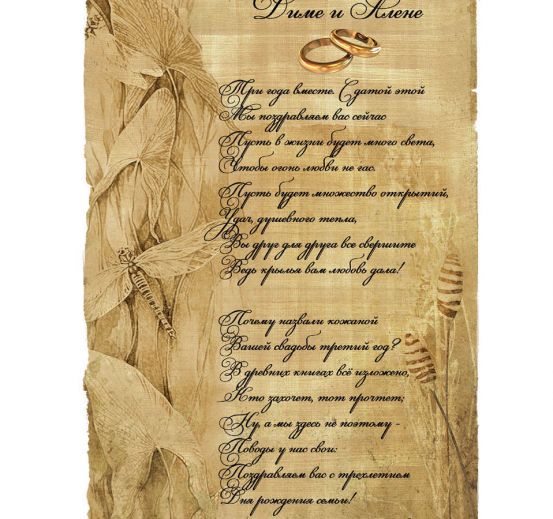 Диме и Алене
Три года вместе. С датой этой
Мы поздравляем вас сейчас
Пусть в жизни будет много света,
Чтобы огонь любви не гас.
Пусть будет множество открытий,
Удач, душевного тепла,
Вы друг для друга все свершите
Ведь крылья вам любовь дала!
Почему назвали кожаной
Вашей свадьбы третий год?
В древних книгах всё изложено,
Кто захочет, тот прочтет;
Ну, а мы здесь не поэтому -
Поводы у нас свои:
Поздравляем вас с трехлетием
Дня рождения семьи!